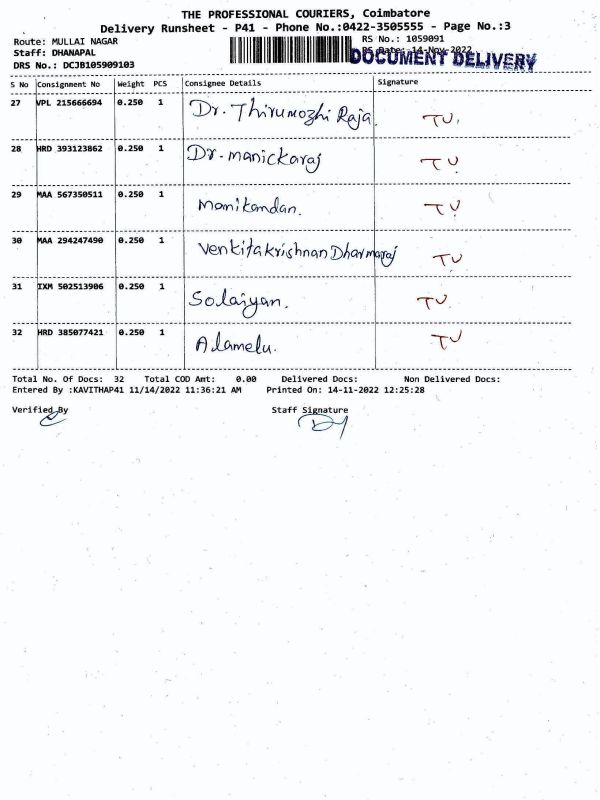 THE PROFESSIONAL COURIERS, Coimbatore
Delivery Runsheet - P41 - Phone No.:0422-3505555 - Page No.:3
Route: MULLAI NAGAR RS No.: 1059091
Staff: DHANAPAL RS Date: 14-Nov-2022 DOCUMENT DELIVERY
DRS No.: DCJB105909103
S No Consignment No Weight PCS Consignee Details Signature
27 VPL 215666694 0.250 1 Dr. Thirumozhi Raja. TU.
28 HRD 393123862 0.250 1 Dr. manickaraj TU
29 MAA 567350511 0.250 1 manikandan. TU
30 MAA 294247490 0.250 1 Venkitakrishnan Dharmaraj TU
31 IXM 502513906 0.250 1 Solaiyan. TU
32 HRD 385077421 0.250 1 Alamelu. TU
Total No. Of Docs: 32 Total COD Amt: 0.00 Delivered Docs: Non Delivered Docs:
Entered By :KAVITHAP41 11/14/2022 11:36:21 AM Printed On: 14-11-2022 12:25:28
Verified By Staff Signature